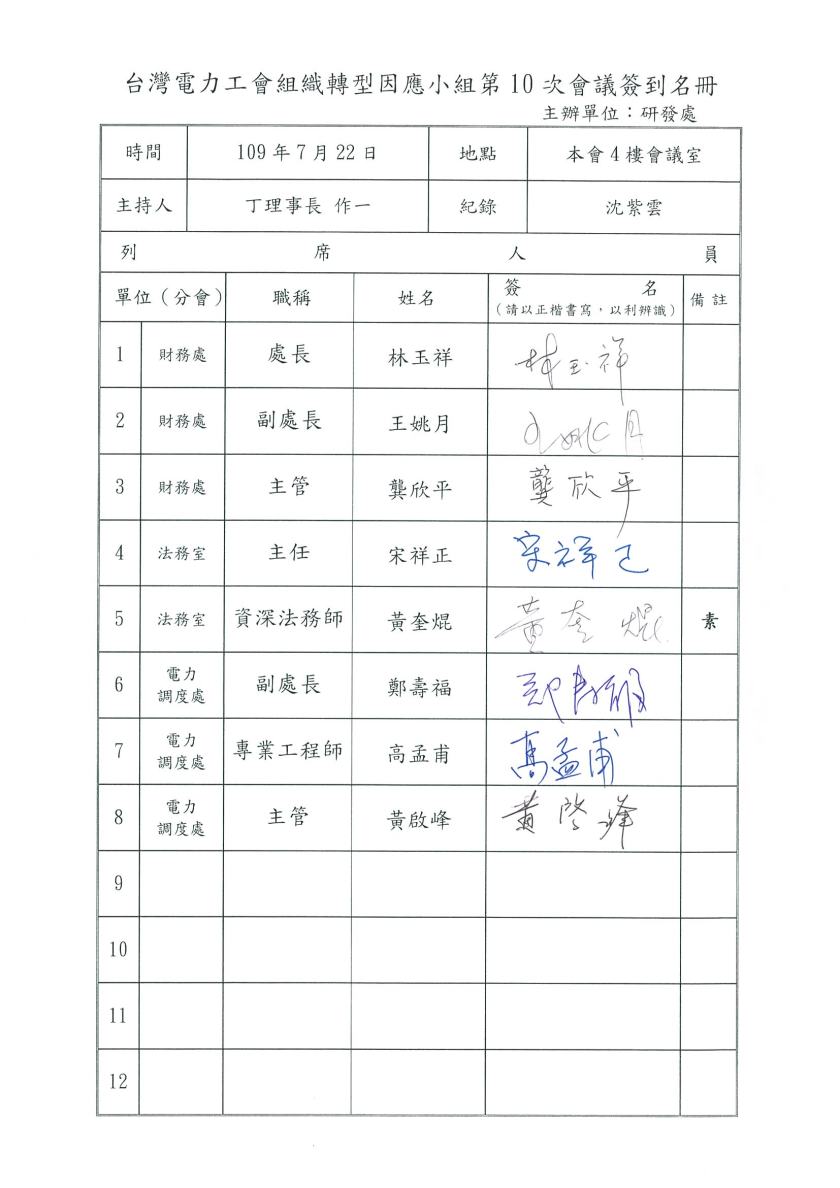 台灣電力工會組織轉型因應小組第10次會議簽到名冊
主辦單位：研發處
時間 109年7月22日 地點 本會4樓會議室
主持人 丁理事長 作一 紀錄 沈紫雲
列席人員
單位（分會） 職稱 姓名 簽名 備註
（請以正楷書寫，以利辨識）
1 財務處 處長 林玉祥 林玉祥
2 財務處 副處長 王姚月 王姚月
3 財務處 主管 龔欣平 龔欣平
4 法務室 主任 宋祥正 宋祥正
5 法務室 資深法務師 黃奎焜 黃奎焜 素
6 電力調度處 副處長 鄭壽福
7 電力調度處 專業工程師 高孟甫 高孟甫
8 電力調度處 主管 黃啟峰 黃啓峰
9
10
11
12